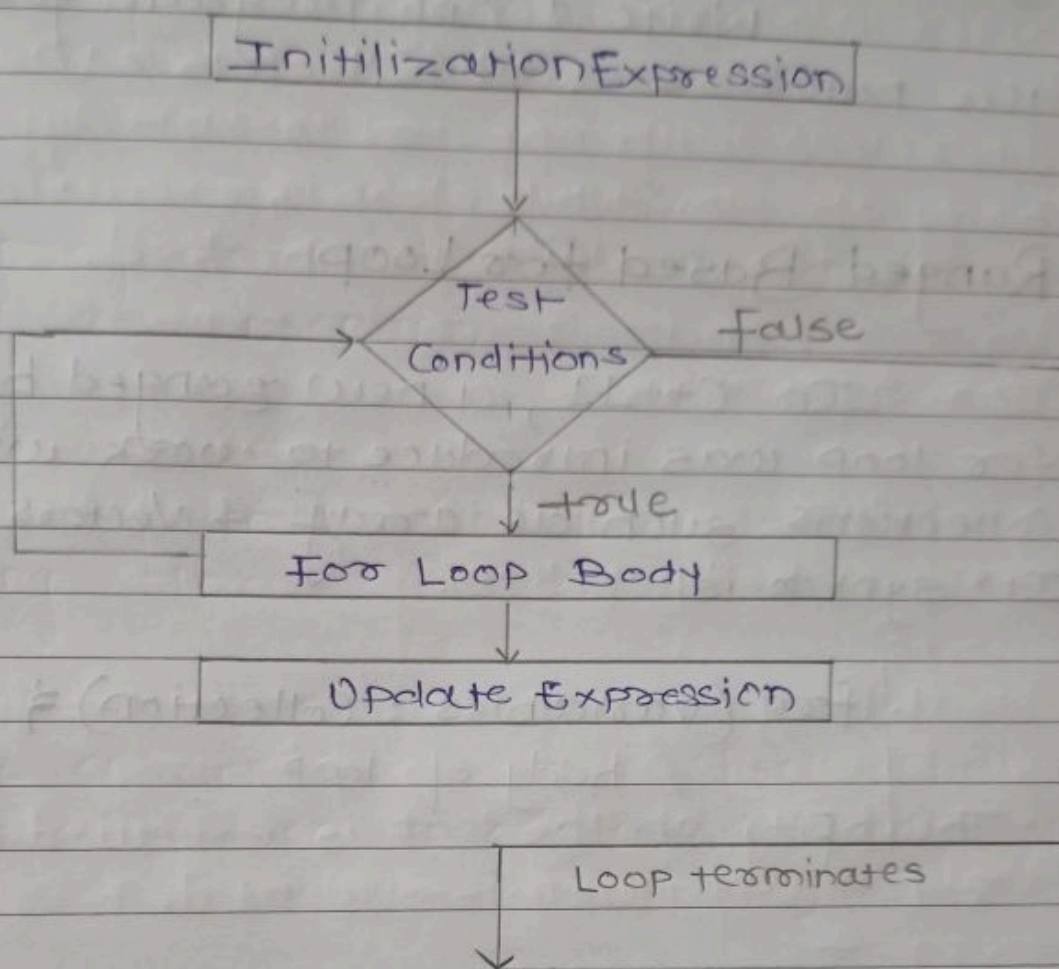 InitilizationExpression
Test
Conditions
false
true
For Loop Body
Update Expression
Loop terminates